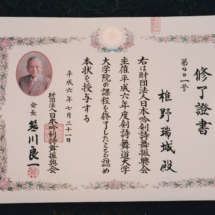 修了證書
第九〇一号
椎野瑞城殿
右は財団法人日本吟剣詩舞振興会
主催平成六年度剣詩舞道大学
大学院の課程を修了したことを認め
本状を授与する
平成六年七月三十一日
財団法人日本吟剣詩舞振興会
会長 笹川良一